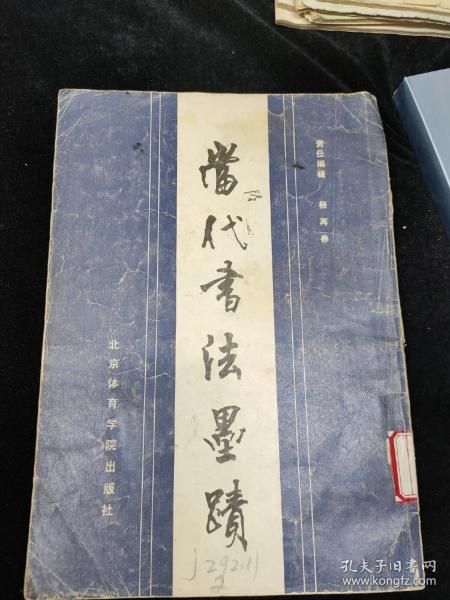 责任编辑 杨再春
當代书法墨蹟
北京体育学院出版社
j292.11
2
孔夫子旧书网
www.kongfz.com